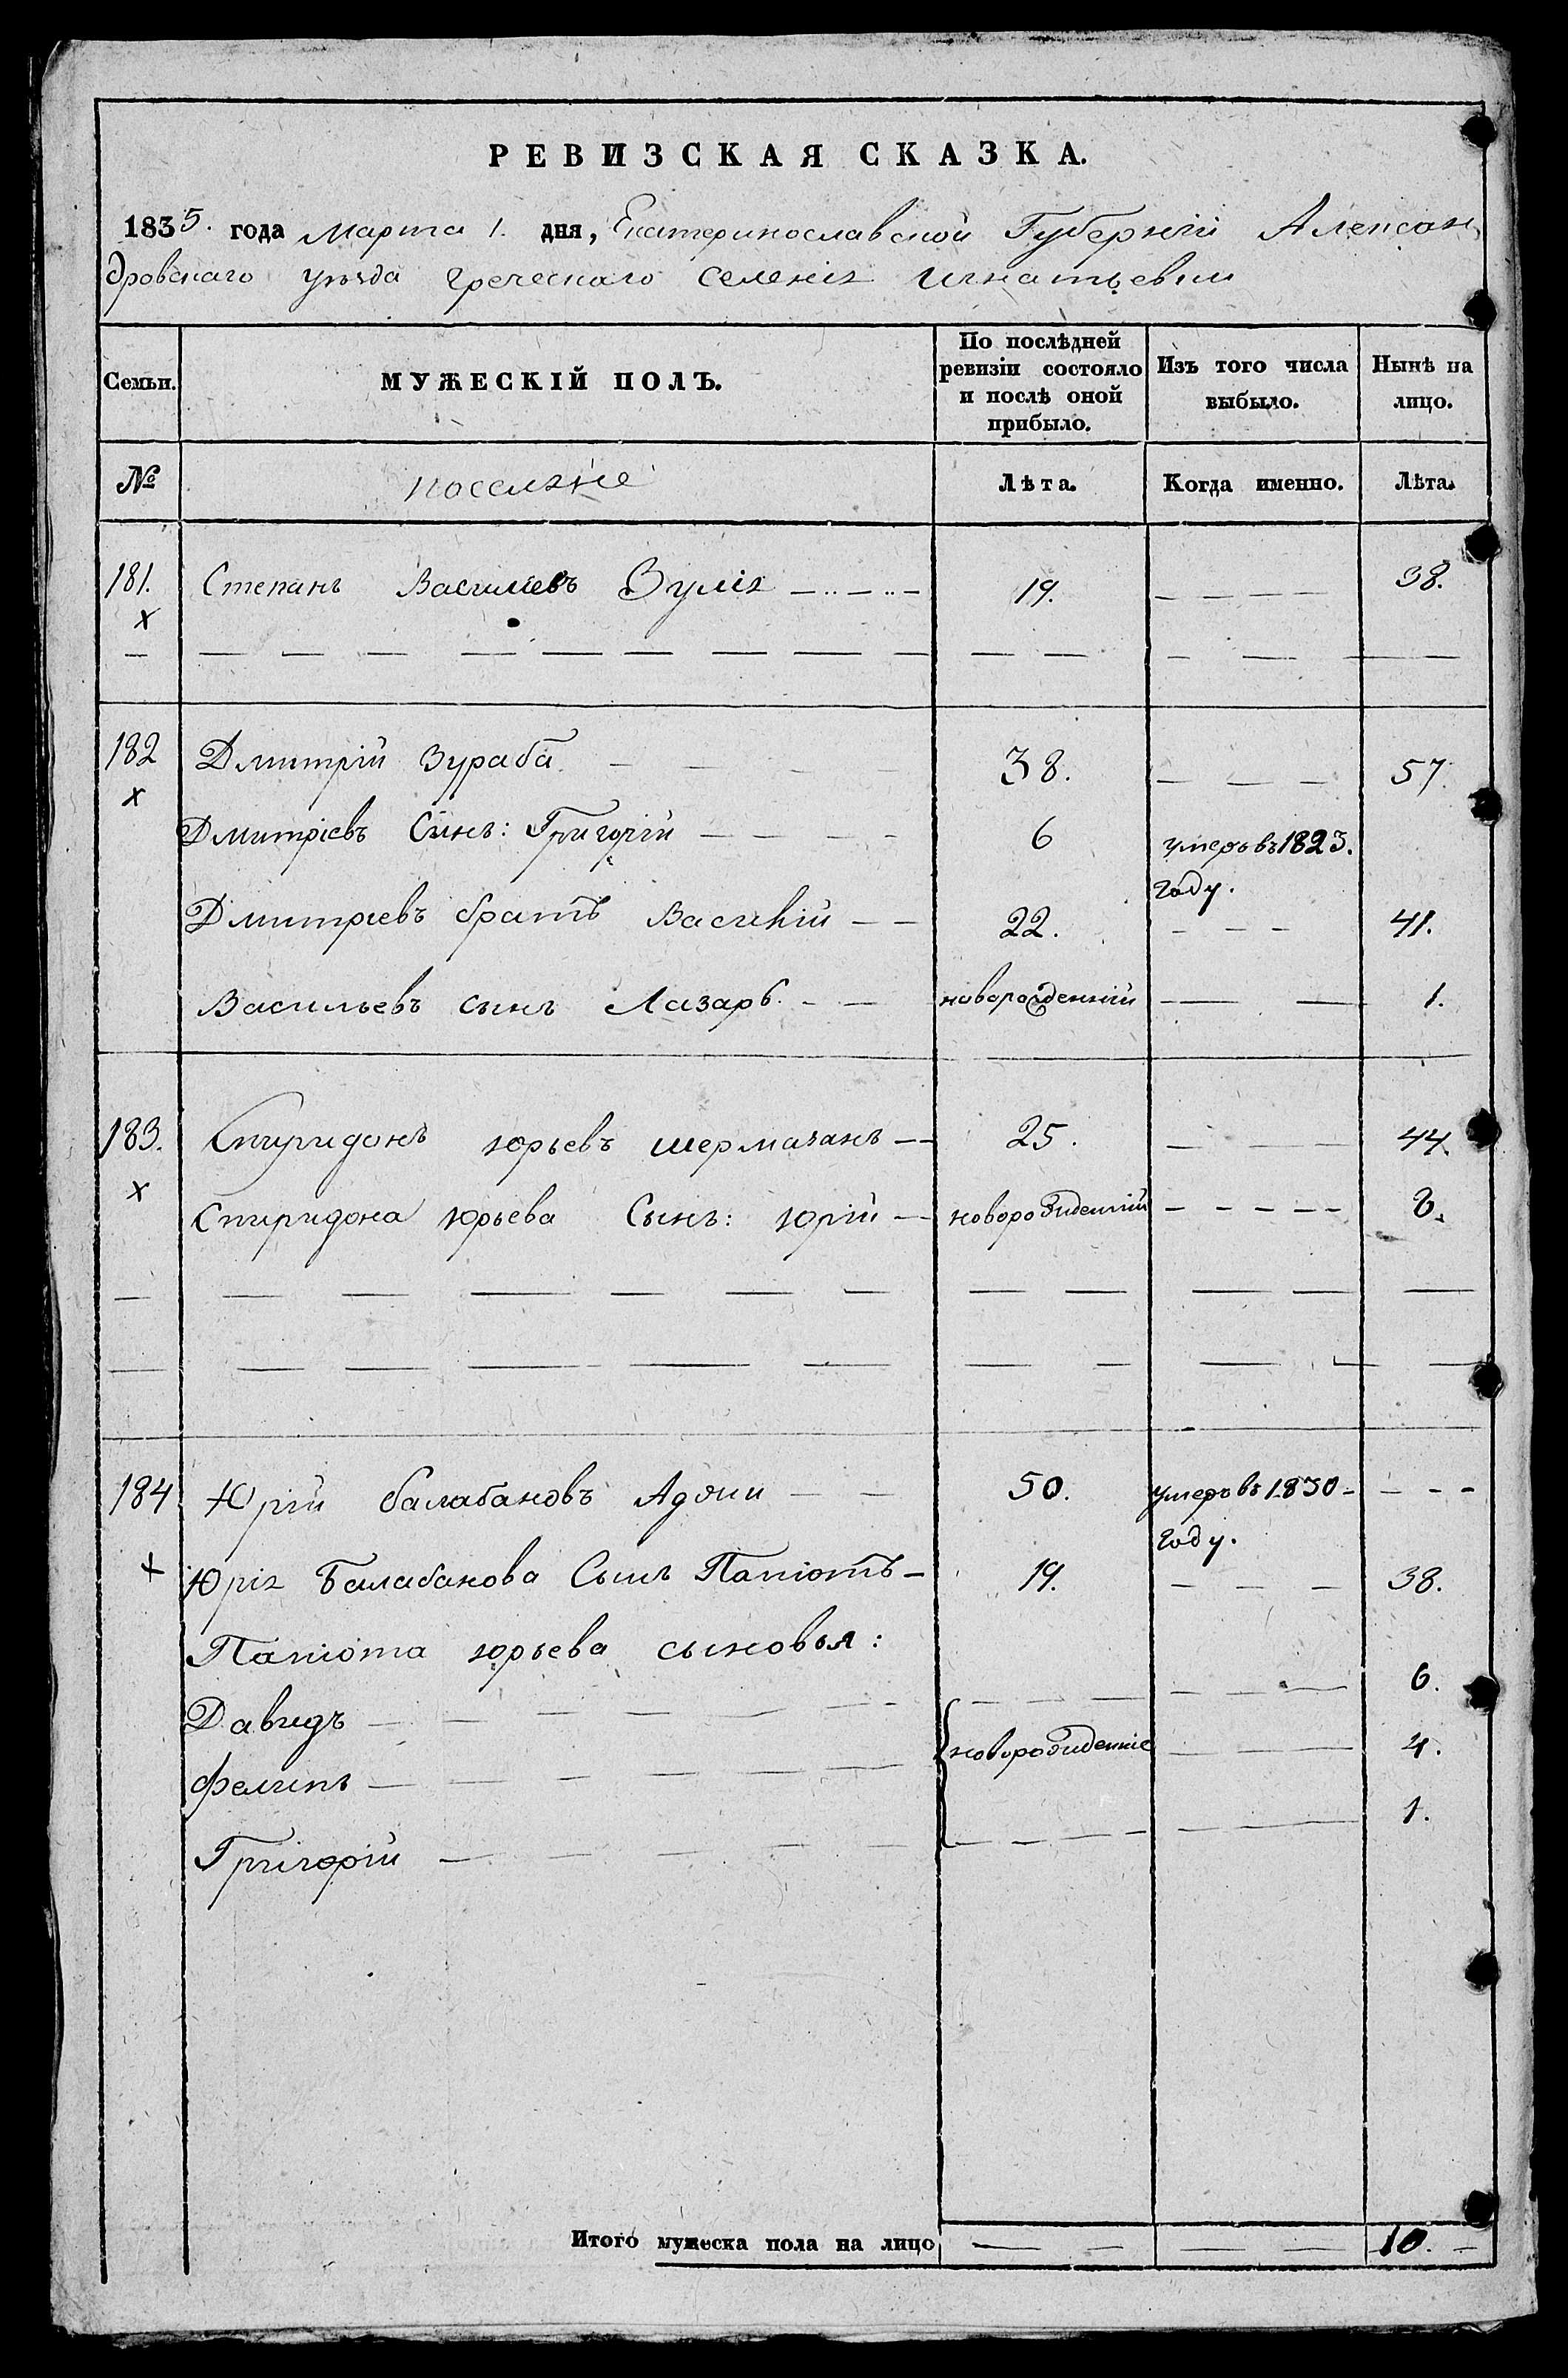 РЕВИЗСКАЯ СКАЗКА.
1835. года марта 1. дня, Екатеринославской Губерній Алексан
дровскаго уѣзда греческаго селенія Игнатьевки
Семьи. МУЖЕСКІЙ ПОЛЪ. По послѣдней ревизіи состояло и послѣ оной прибыло. Изъ того числа выбыло. Нынѣ на лицо.
№ поселяне Лѣта. Когда именно. Лѣта.
181. Степанъ Василіевъ Зуліа 19. 38.
х
182 Дмитрій Зураба 38. 57.
х
Дмитріевъ Синъ: Григорій 6 умеръ въ 1823. году.
Дмитріевъ братъ Василій 22. 41.
Васильевъ сынъ Лазарь новорожденній 1.
183. Спиридонъ юрьевъ шермазанъ 25. 44.
х
Спиридона юрьева Сынъ: юрій новорожденній 8.
184 Юрій балабановъ Аджи 50. умеръ въ 1830 году.
х
Юрія Балабанова Сынъ Папіотъ 19. 38.
Папіота юрьева сыновья:
Давидъ 6.
Фелипъ новорожденніе 4.
Григорій 1.
Итого мужеска пола на лицо 10.